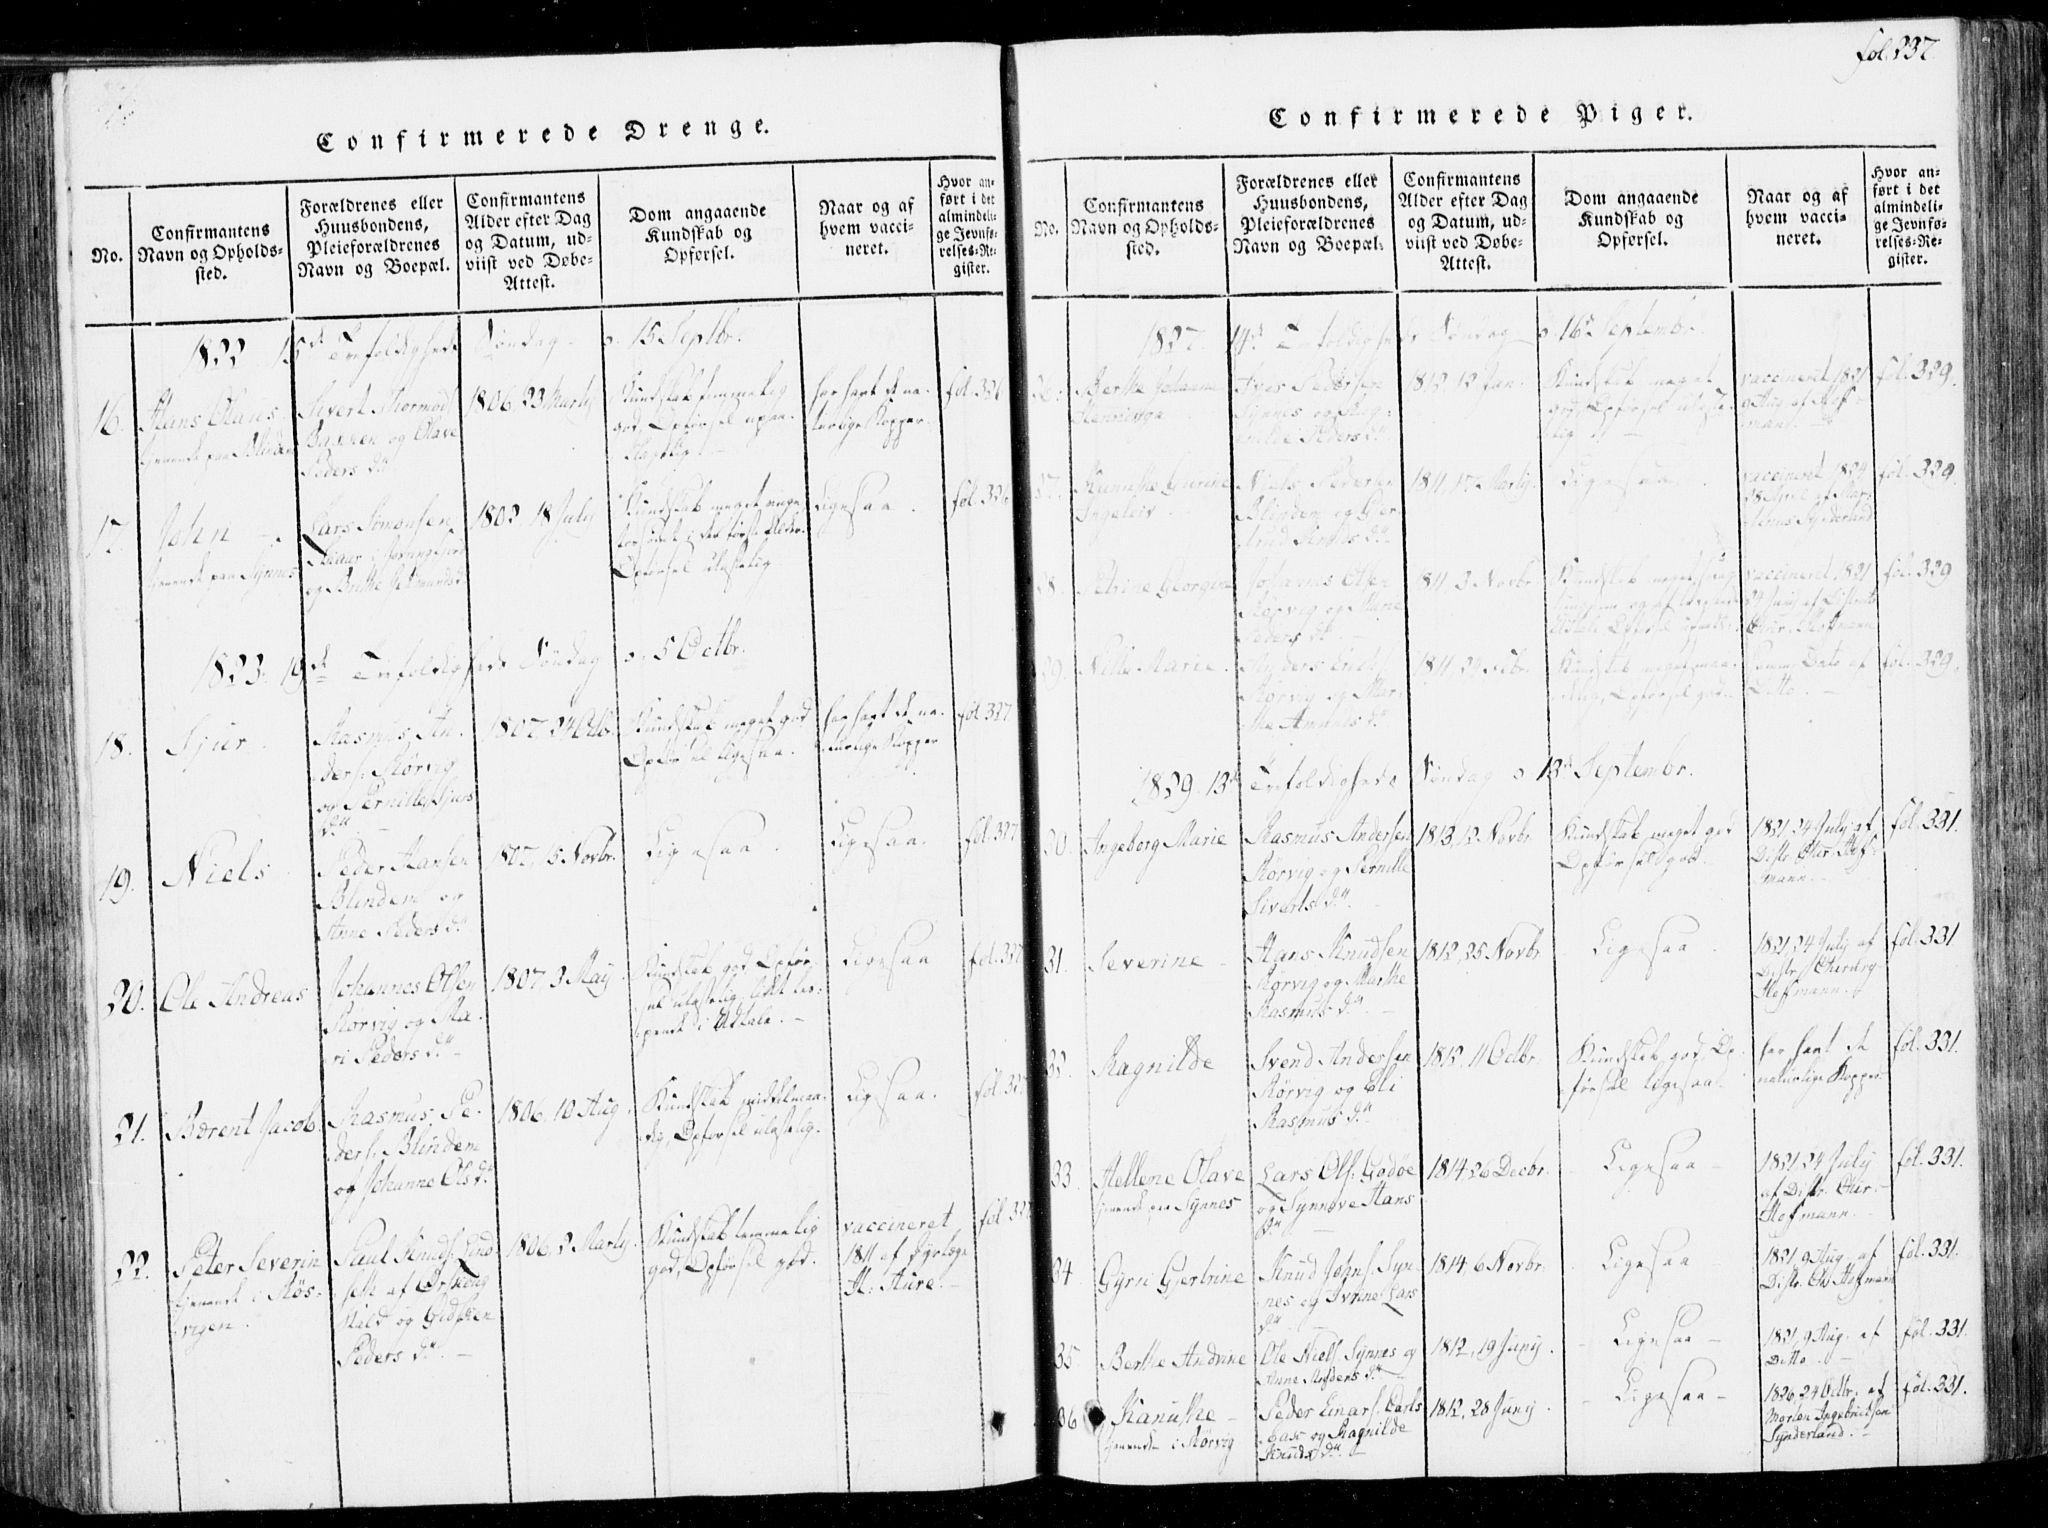 Confirmerede Drenge.
No.
Confirmantens
Navn og Opholds-
sted.
Forældrenes eller
Huusbondens,
Pleieforældrenes
Navn og Boepæl.
Confirmantens
Alder efter Dag
og Datum, ud-
viist ved Døbe-
Attest.
Dom angaaende
Kundskab og
Opførsel.
Naar og af
hvem vacci-
neret.
Hvor an-
ført i det
almindeli-
ge Jevnfø-
relses-Re-
gister.
1822 15de Trefoldigheds Søndag d. 15 Septbr.
16.
Hans Olaus
tjenende paa Blindem
Sivert
Bakken og Olave
Peders Dr
1806. 23 Martij
Kundskab temmelig
god, Opførsel upaa-
klagelig
har havt de na-
turlige Kopper.
fol. 326
17.
John
tjenende paa Synnes
Lars Simonsen
og Brithe
1802 18 July
Kundskab meget
Opførsel ulastelig
Ligesaa.
fol. 326
1823. 19de Trefoldigheds Søndag d. 5 Octbr.
18.
Sjur
Rasmus An-
ders. Rørvig
og Pernille Sjurs
Dr
1807. 24 Octbr.
Kundskab meget god
Opførsel ligesaa.
har havt de na-
turlige Kopper
fol. 327
19.
Niels
Peder Hansen
Blindem og
Anne Peders Dr
1807. 15 Novbr.
Ligesaa.
Ligesaa.
fol. 327
20.
Ole Andreas
Johannes Olsen
Rørvig og Ma-
ri Peders Dr
1807. 3 May
Kundskab god Opfør-
sel ulastelig, lidt læs-
pende i Udtale.
Ligesaa
fol. 327
21.
Bærent Jacob.
Rasmus Pe-
ders. Blindem
og Johanne Ols Dr
1806. 10 Aug.
Kundskab middelmaa-
dig, Opførsel ulastelig.
Ligesaa.
fol. 327
22.
Peter Severin
tjenende i Røs-
vigen.
Paul Knuds. Land-
seth af Ørskoug
Skield og Gidsken
Peders Dr
1806. 2 Martij.
Kundskab temmelig
god, Opførsel god.
vaccineret
1811 af
H. Aure.
fol. 327
fol. 237
Confirmerede Piger.
No.
Confirmantens
Navn og Opholds-
sted.
Forældrenes eller
Huusbondens,
Pleieforældrenes
Navn og Boepæl.
Confirmantens
Alder efter Dag
og Datum, ud-
viist ved Døbe-
Attest.
Dom angaaende
Kundskab og
Opførsel.
Naar og af
hvem vacci-
neret.
Hvor an-
ført i det
almindeli-
ge Jevnfø-
relses-Re-
gister.
1827. 14de Trefoldigheds Søndag d. 16de Septembr.
26.
Berthe Johanne
Iver Pedersen
Synnes og Rag-
nilde Peders Dr
1812 12 Jan.
Kundskab meget
god, Opførsel ulaste-
lig
vaccineret 1821
9 Aug. af Hof-
mann.
fol. 329.
27.
Kanutke Gurine
Ingeleiv.
Niels Peders.
Blindem og Gjer-
trud Dr
1811. 17 Martij
Ligesaa.
vaccineret 1824
Synderland
fol. 329
28.
Petrine Georgine
Johannes Olsen
Rørvig og Marie
Peders Dr
1811. 3 Novbr
Kundskab meget
vaccineret, 1821
24 July af Districts
Chir. Hoffmann
fol. 329
29.
Nille Marie.
Anders
Rørvig og Mar-
the Dr
1811. 24
Kundskab meget maa-
delig, Opførsel god.
Samme Dato af
Ditto.
fol. 329.
1829. 13de Trefoldigheds Søndag d. 13de Septembr.
30.
Ingeborg Marie
Rasmus Andersen
Rørvig og Pernille
Siverts Dr
1813, 12 Novbr.
Kundskab meget god
Opførsel god.
1821. 24 July af
Distr. Chir. Hof-
mann.
fol. 331.
31.
Severine
Hans Knudsen
Rørvig og Marthe
Rasmus Dr
1812, 25 Novbr
Ligesaa
1821, 24 July af
Distr. Chirurg
Hofmann.
fol. 331
32.
Ragnilde
Svend Andersen
Rørvig og Eli
Rasmus Dr
1812. 11 Octbr.
Kundskab god, Op-
førsel ligesaa.
har havt de
naturlige Kopper.
fol. 331.
33.
Hellene Olave
tjenende paa Synnes
Lars Ols. Godøe
og Synnøve Hans
Dr
1814. 26 Decbr.
Ligesaa
1821. 24 July
af Distr. Chir.
Hofmann.
fol. 331.
34.
Gyri Gjertrine
Knud Johns. Syn-
nes og Ivrine Lars
Dr
1814, 6 Novbr.
Ligesaa
1821. 9 Aug. af
Distr. Ch. Hofmann
fol. 331.
35.
Berthe Andrine
Ole Niels. Synnes og
Anne Anders Dr
1812, 19 Junij.
Ligesaa
1821. 9 Aug. af
Ditto.
fol. 331.
36.
Kanutke
tjenende i Rørvig
Peder Einars. Carls-
bak og Ragnilde
Knuds Dr
1812, 28 Junij.
Ligesaa
1826. 24 Octbr. af
Morten Ingebrictsen
Synderland.
fol. 331.